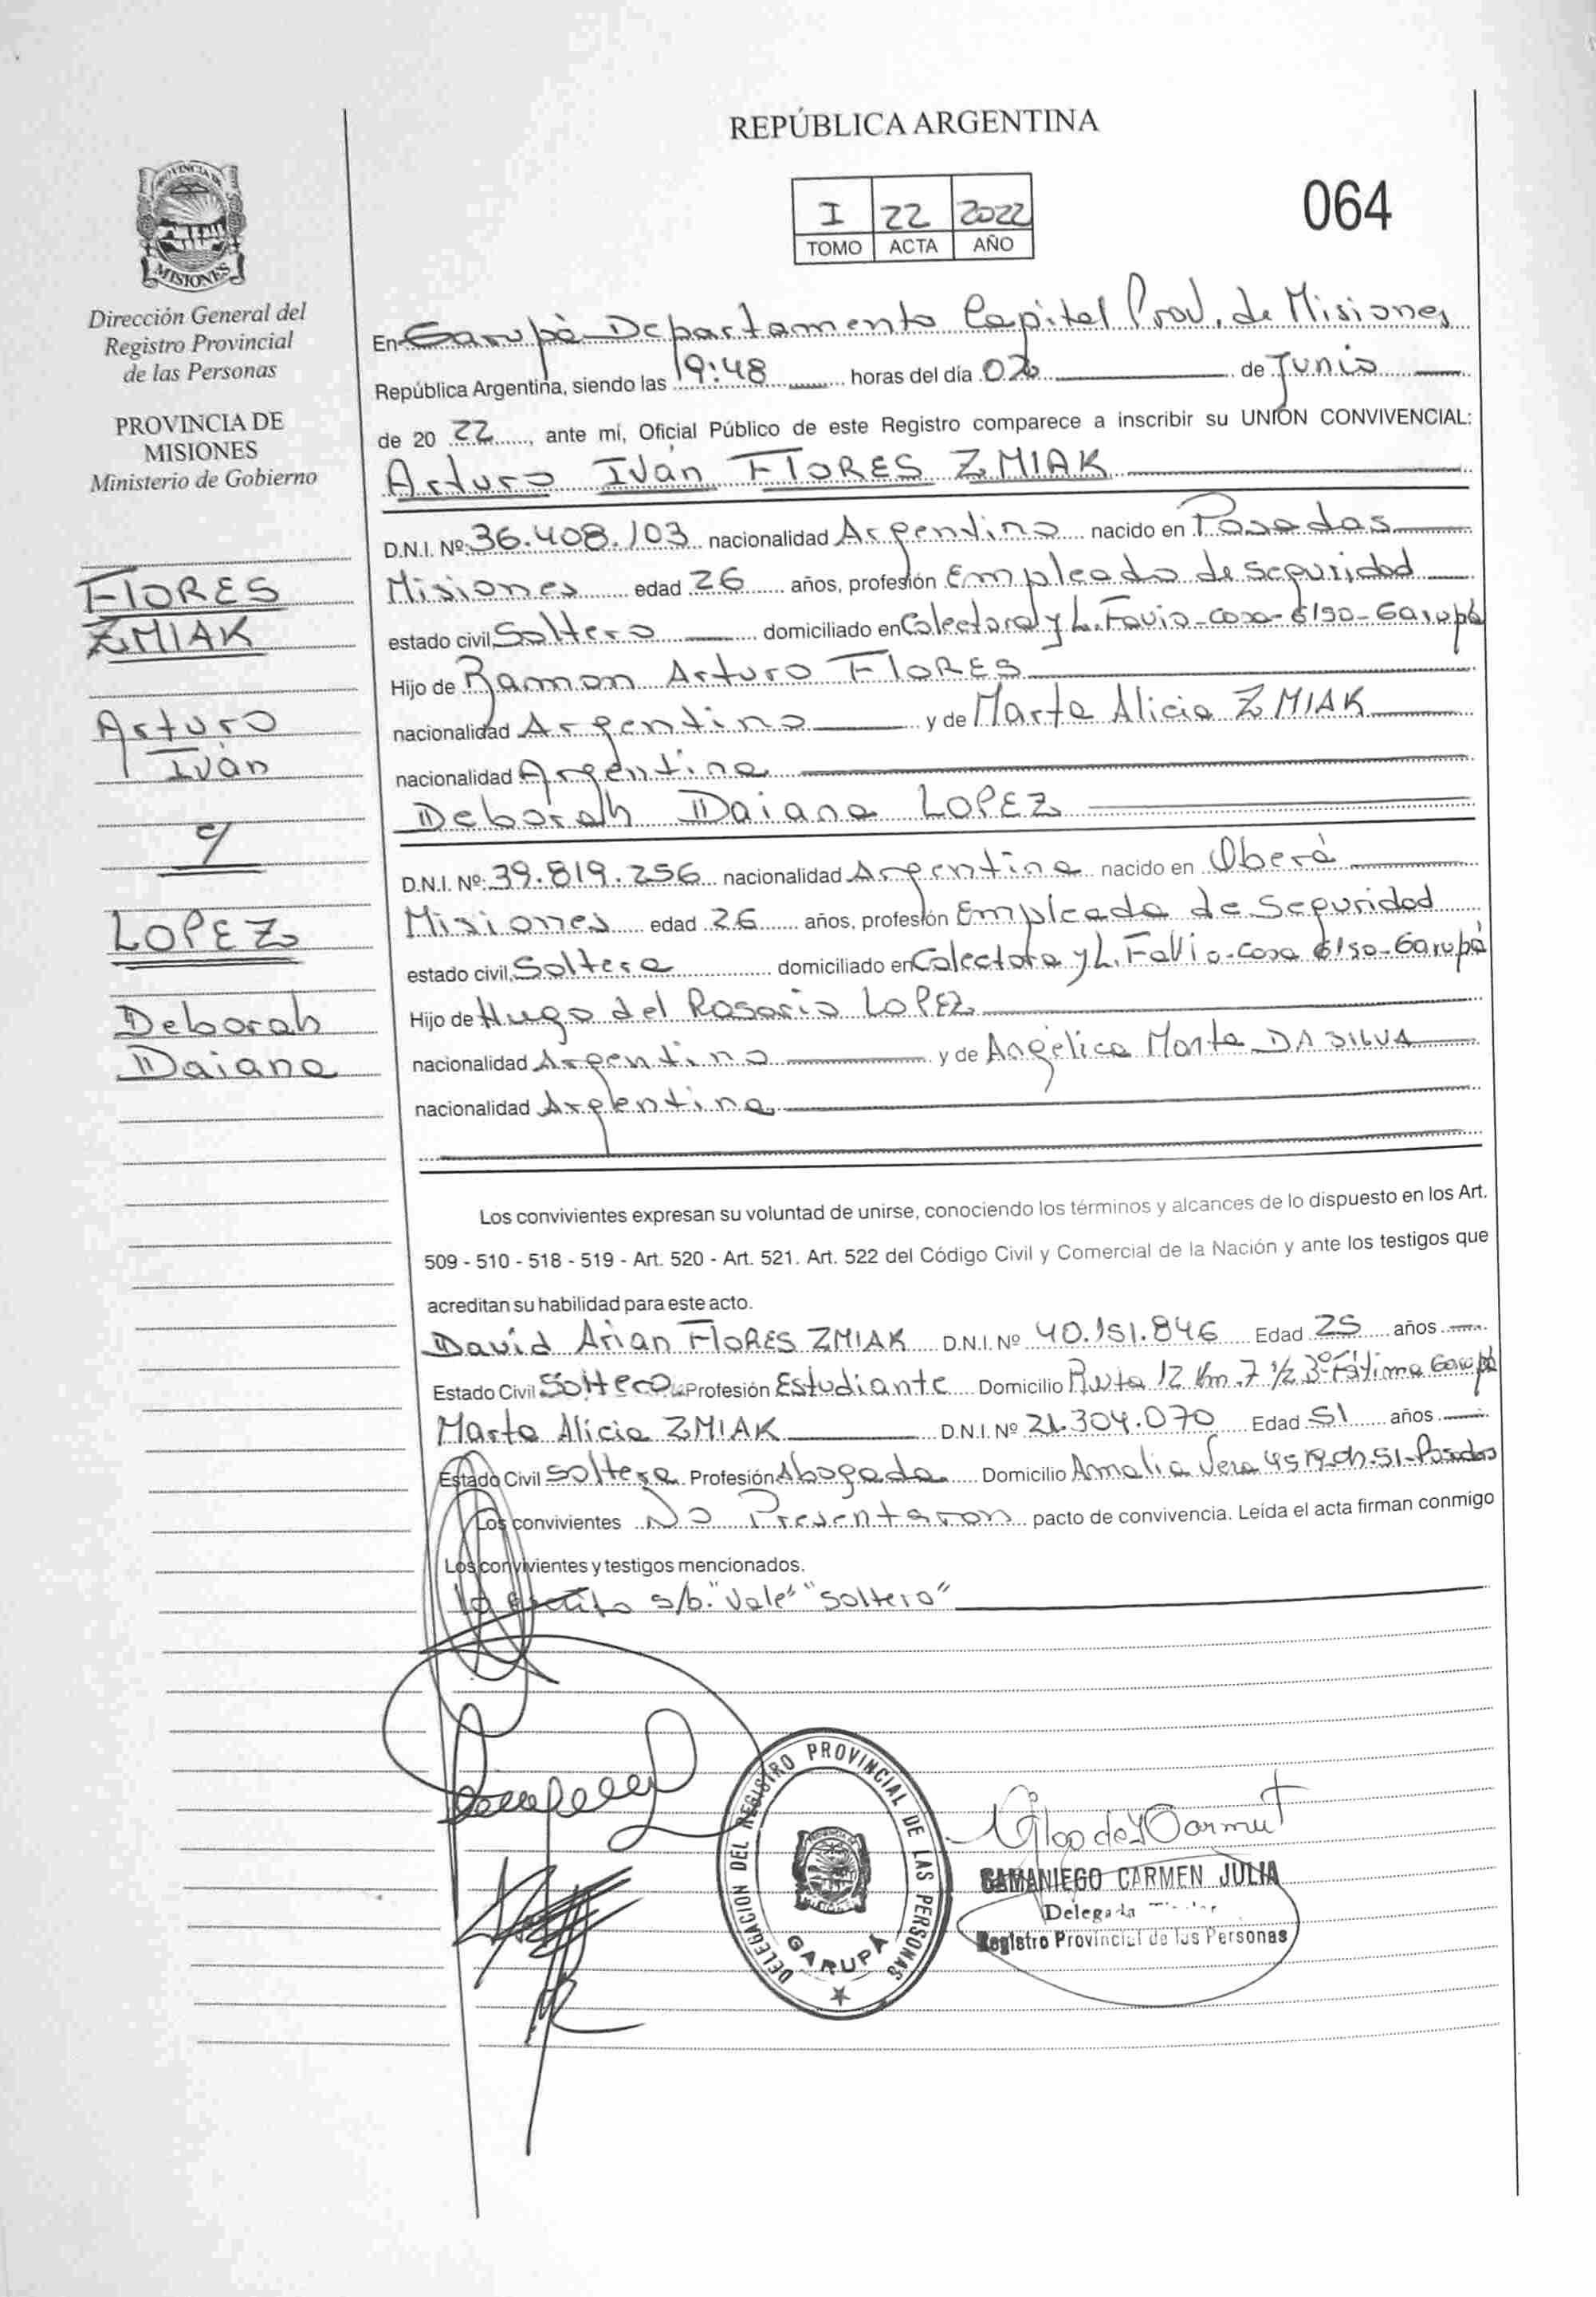 REPÚBLICA ARGENTINA
I 22 2022
TOMO ACTA AÑO
064
PROVINCIA DE
MISIONES
Dirección General del
Registro Provincial
de las Personas
PROVINCIA DE
MISIONES
Ministerio de Gobierno
FLORES
ZMIAK
Arturo
Iván
c/
LOPEZ
Deborah
Daiana
En Garupá Departamento Capital Prov. de Misiones
República Argentina, siendo las 9:48 horas del día 02 de Junio
de 20 22, ante mí, Oficial Público de este Registro comparece a inscribir su UNIÓN CONVIVENCIAL:
Arturo Iván FLORES ZMIAK
D.N.I. Nº: 36.408.103 nacionalidad Argentino nacido en Posadas
Misiones edad 26 años, profesión Empleado de seguridad
estado civil Soltero domiciliado en Colectora y L. Favio-casa-6150-Garupá
Hijo de Ramon Arturo FLORES
nacionalidad Argentino y de Marta Alicia ZMIAK
nacionalidad Argentina
Deborah Daiana LOPEZ
D.N.I. Nº: 39.819.256 nacionalidad Argentina nacido en Oberá
Misiones edad 26 años, profesión Empleada de Seguridad
estado civil Soltera domiciliado en Colectora y L. Favio-casa 6150-Garupá
Hijo de Hugo del Rosario LOPEZ
nacionalidad Argentino y de Angélica Marta DA SILVA
nacionalidad Argentina
Los convivientes expresan su voluntad de unirse, conociendo los términos y alcances de lo dispuesto en los Art.
509 - 510 - 518 - 519 - Art. 520 - Art. 521. Art. 522 del Código Civil y Comercial de la Nación y ante los testigos que
acreditan su habilidad para este acto.
David Arian FLORES ZMIAK D.N.I. Nº 40.151.846 Edad 25 años
Estado Civil Soltero Profesión Estudiante Domicilio Ruta 12 Km.7 1/2 Bº Fátima Garupá
Marta Alicia ZMIAK D.N.I. Nº 21.304.070 Edad 51 años
Estado Civil Soltera Profesión Abogada Domicilio Amalia Vera Ch. 51-Posadas
Los convivientes No Presentaron pacto de convivencia. Leída el acta firman conmigo
Los convivientes y testigos mencionados.
lo escrito s/b. "Vale" "Soltero"
DELEGACION DEL REGISTRO PROVINCIAL DE LAS PERSONAS
GARUPÁ
SAMANIEGO CARMEN JULIA
Delegada
Registro Provincial de las Personas